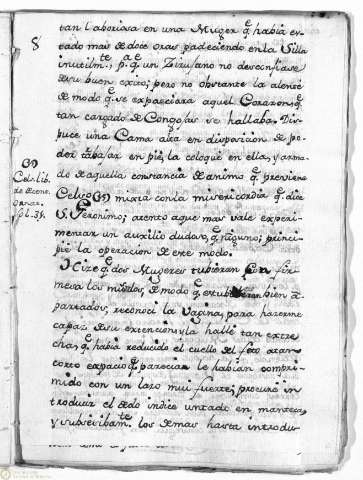 8
tan laboriosa en una Muger q.e había es-
tado mas de doce oras padeciendo en la Silla
inutilm.te p.a q.e un Zirujano no desconfiase
de su buen exito; pero no obstante la alenté
de modo q.e se expaeciara aquel Corazon, q.e
tan cargado de Congojas se hallaba. Dis-
puce una Cama alta en disposicion de po-
der trabajar en pie, la coloque en ella, y arma-
do de aquella constancia de animo q.e previene
Celso mixta con la misericordia q.e dice
S. Geronimo; atento aque mas vale experi-
mentar un auxilio dudoso, q.e ninguno; princi-
pié la operacion de este modo.
Cel. lib.
de
fol. 35.
Hize q.e dos Mugeres tubieran con fir-
meza los muslos, de modo q.e estubieran bien a-
parrados, reconoci la Vagina, para hazerme
capaz de su extencion, y la hallé tan estre-
cha, q.e había reducido el cuello del feto a tan
corto espacio, q.e parecian le habian compri-
mido con un lazo mui fuerte; procuré in-
troducir el dedo indice untado en manteca,
y subsecibam.te los demas hasta introdu-